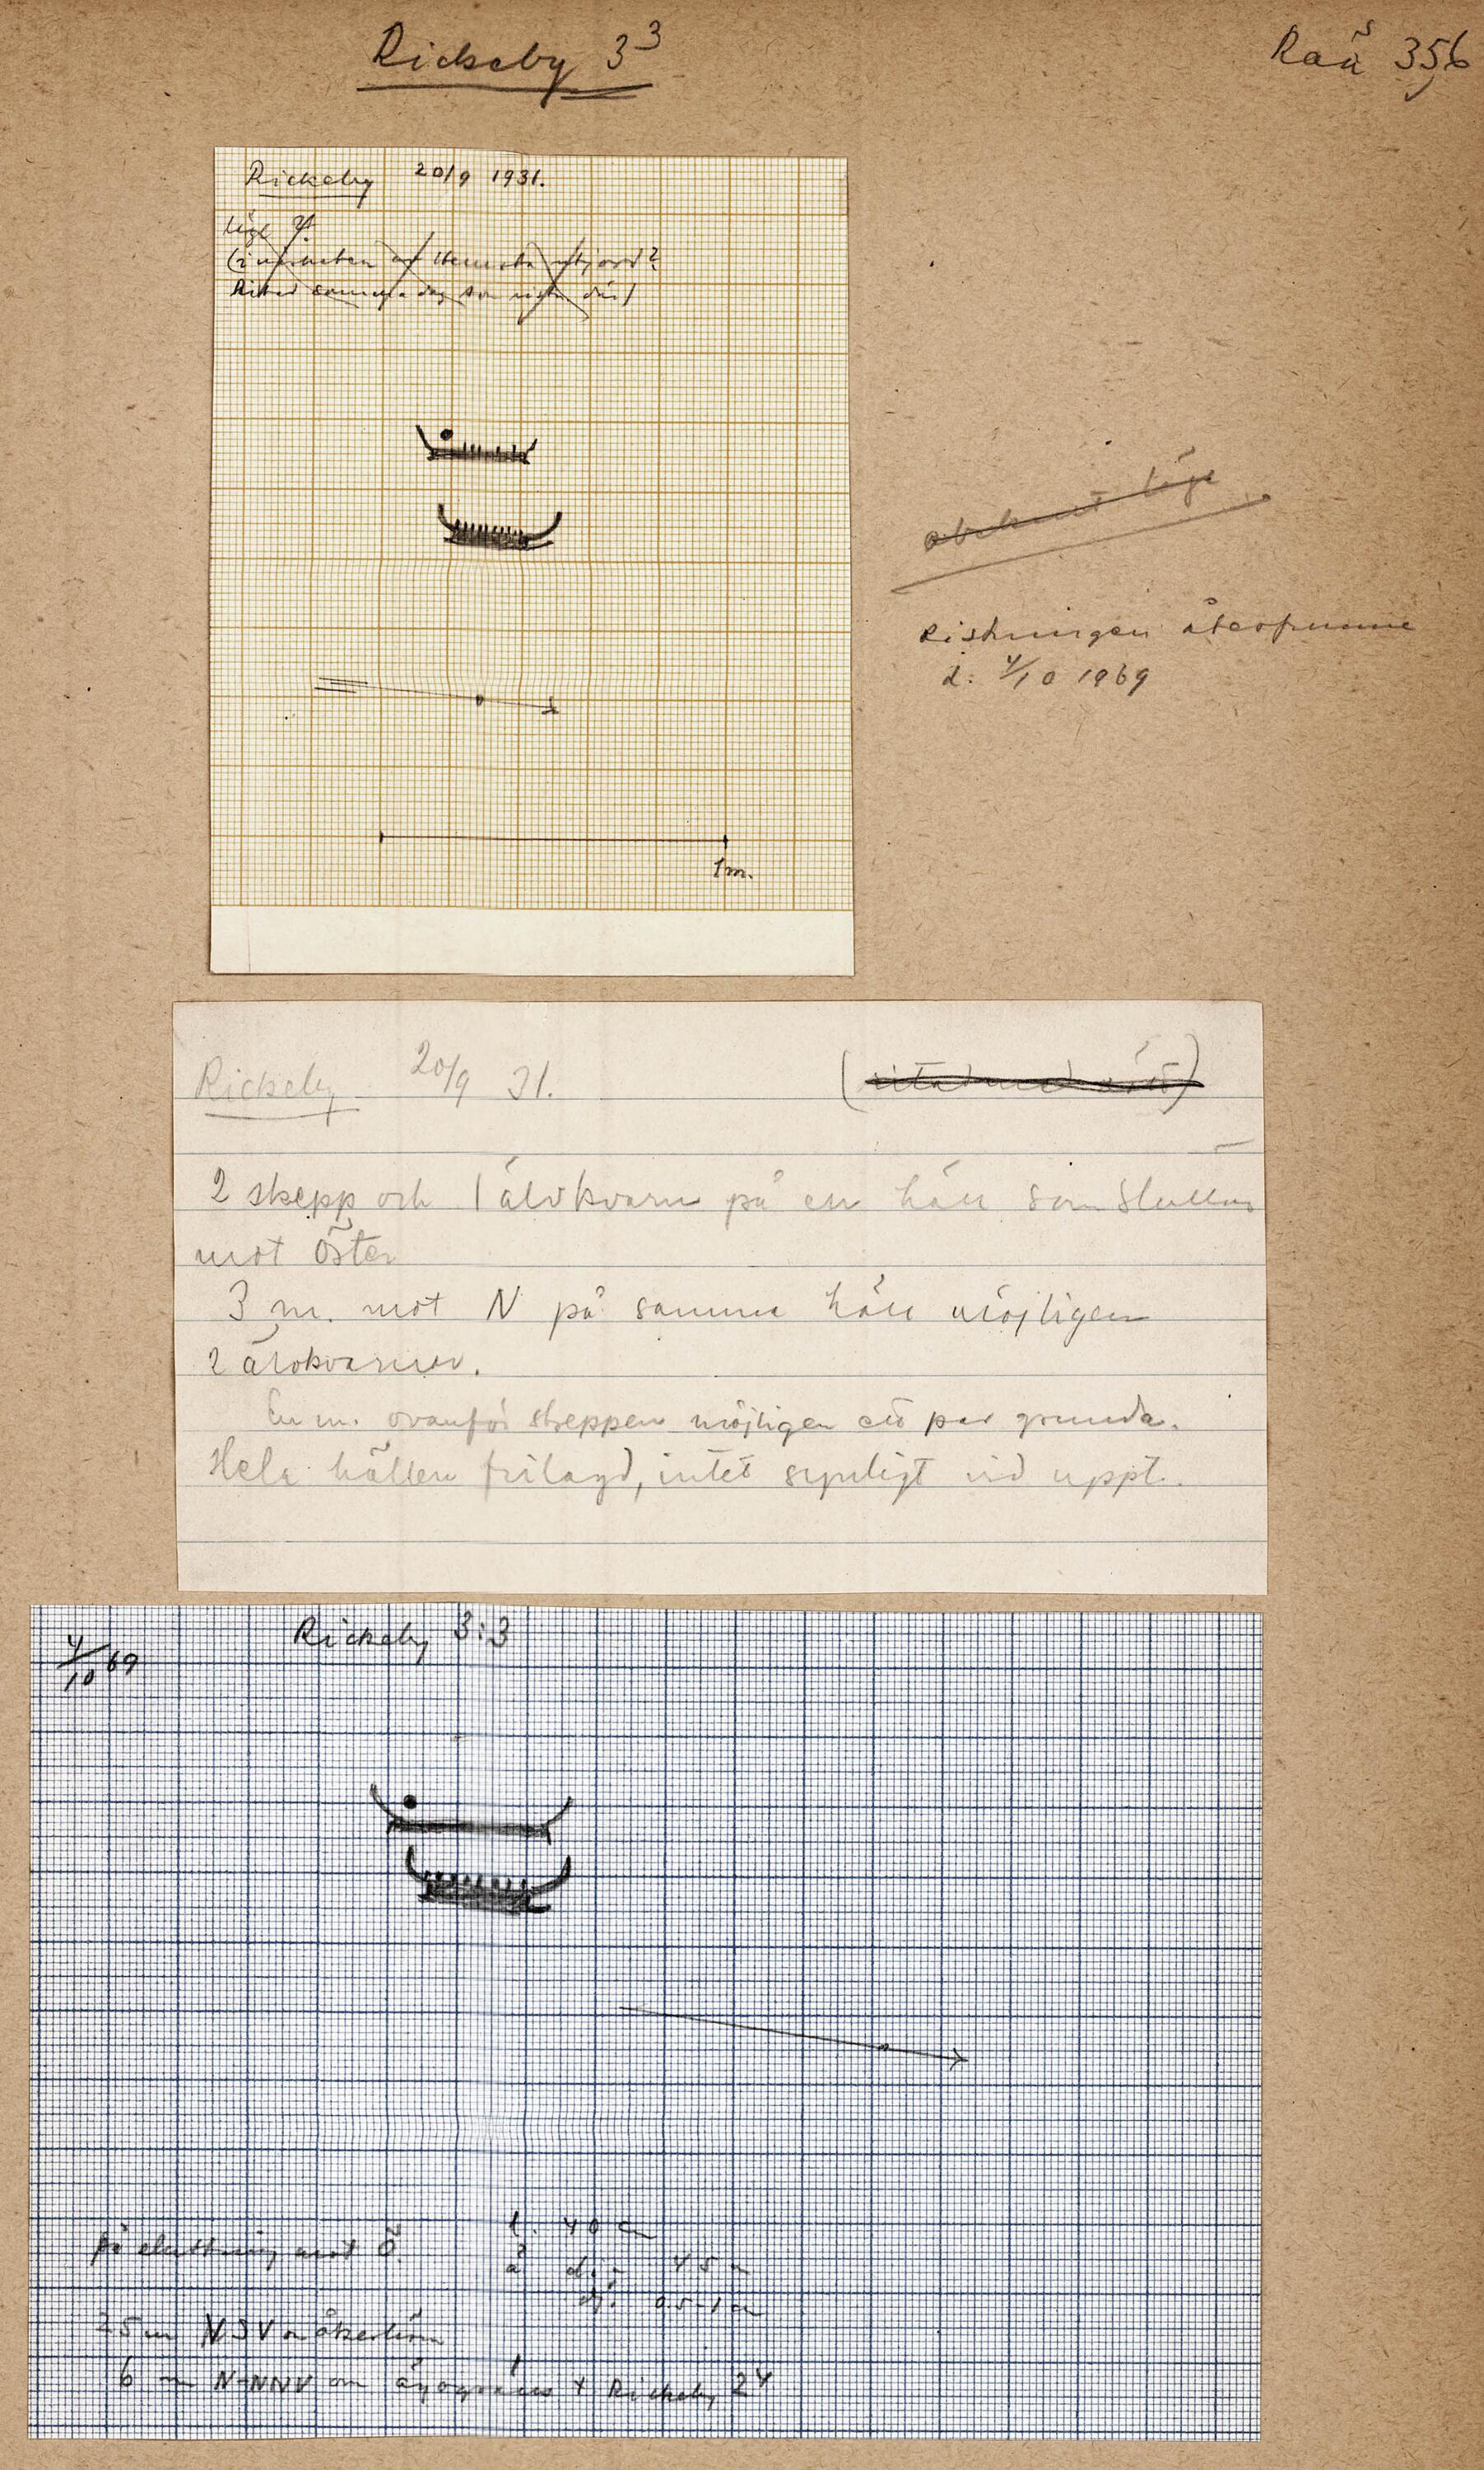 Rickeby 3³
Raä 356
Rickeby 20/9 1931.
läge ?
(i närheten av Hemsta utjord?
Ritad samma dag som ristn där)
1 m.
obekant läge
Ristningen återfunnen
d. 4/10 1969
Rickeby 20/9 31.
2 skepp och 1 älvkvarn på en häll som sluttar
mot öster
3 m. mot N på samma häll möjligen
2 älvkvarnar.
En m. ovanför skeppen möjligen ett par grunda.
Hela hällen frilagd, intet synligt vid uppt.
4/10 69
Rickeby 3:3
På sluttning mot Ö.
l. 40 cm
ä diam 4.5 cm
dj. 0.5-1 cm
25 m
6 m N-NNV om ägogräns + Rickeby 2⁴